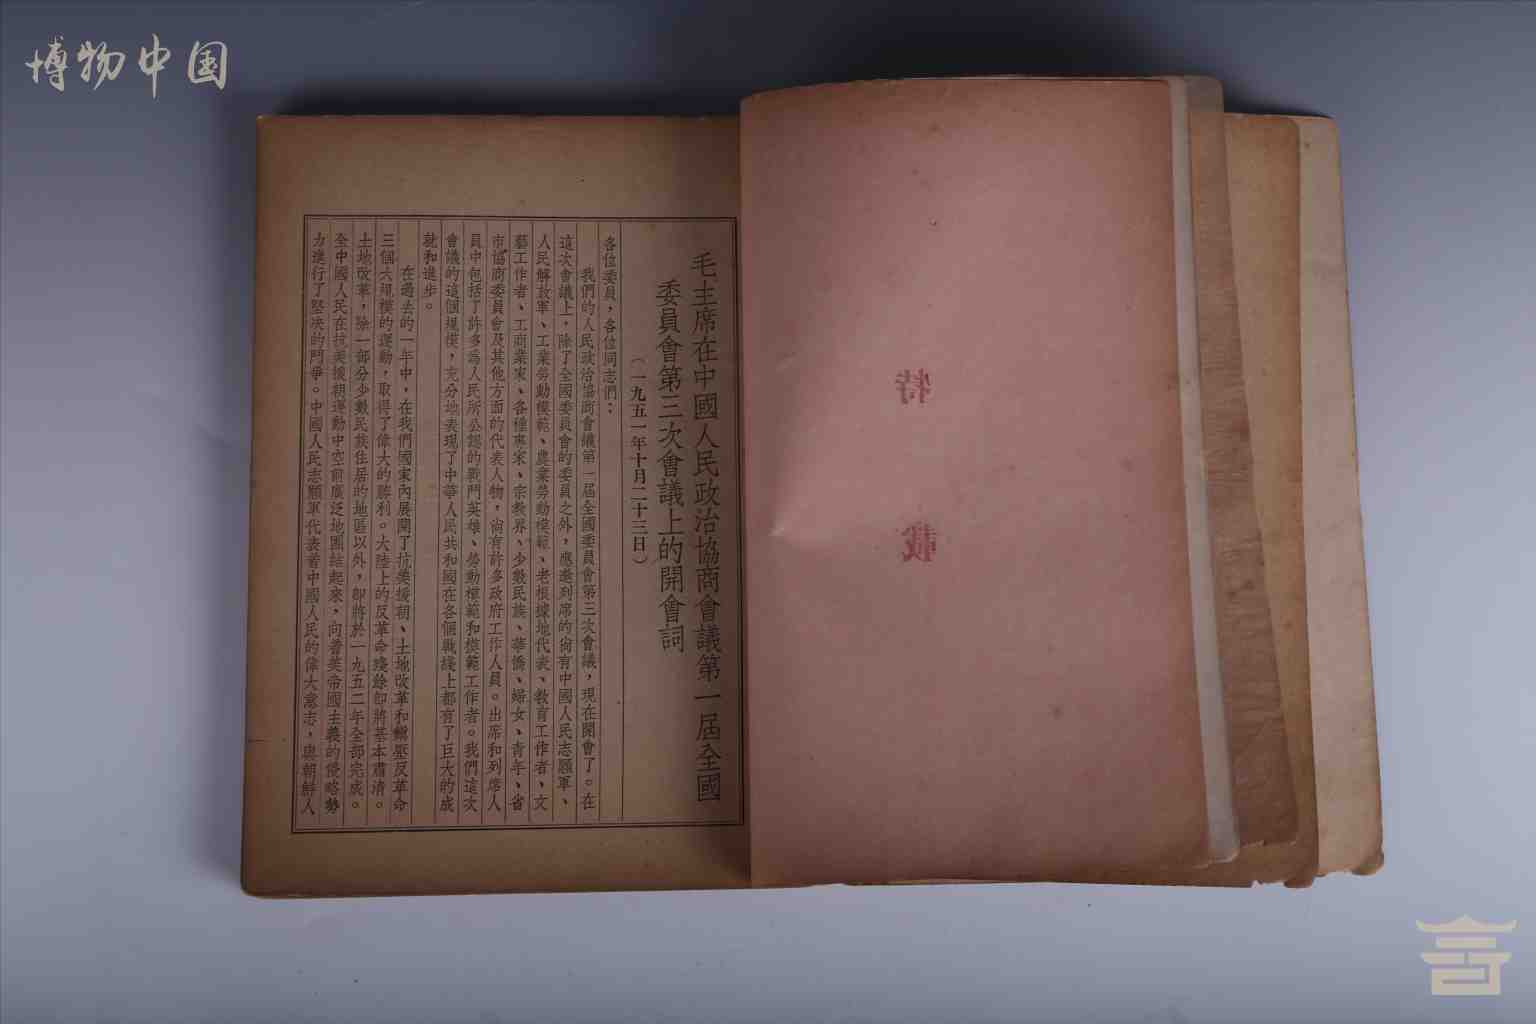 博物中国
毛主席在中國人民政治協商會議第一屆全國
委員會第三次會議上的開會詞
（一九五一年十月二十三日）
各位委員，各位同志們：
我們的人民政治協商會議第一屆全國委員會第三次會議，現在開會了。在
這次會議上，除了全國委員會的委員之外，應邀列席的尙有中國人民志願軍、
人民解放軍、工業勞動模範、農業勞動模範、老根據地代表、教育工作者、文
藝工作者、工商業家、各種專家、宗教界、少數民族、華僑、婦女、青年、省
市協商委員會及其他方面的代表人物，尙有許多政府工作人員。出席和列席人
員中包括了許多爲人民所公認的戰鬥英雄、勞動模範和模範工作者。我們這次
會議的這個規模，充分地表現了中華人民共和國在各個戰綫上都有了巨大的成
就和進步。
在過去的一年中，在我們國家內展開了抗美援朝、土地改革和鎭壓反革命
三個大規模的運動，取得了偉大的勝利。大陸上的反革命殘餘卽將基本肅淸。
土地改革，除一部分少數民族住居的地區以外，卽將於一九五二年全部完成。
全中國人民在抗美援朝運動中空前廣泛地團結起來，向着美帝國主義的侵略勢
力進行了堅決的鬥爭。中國人民志願軍代表着中國人民的偉大意志，與朝鮮人
特載